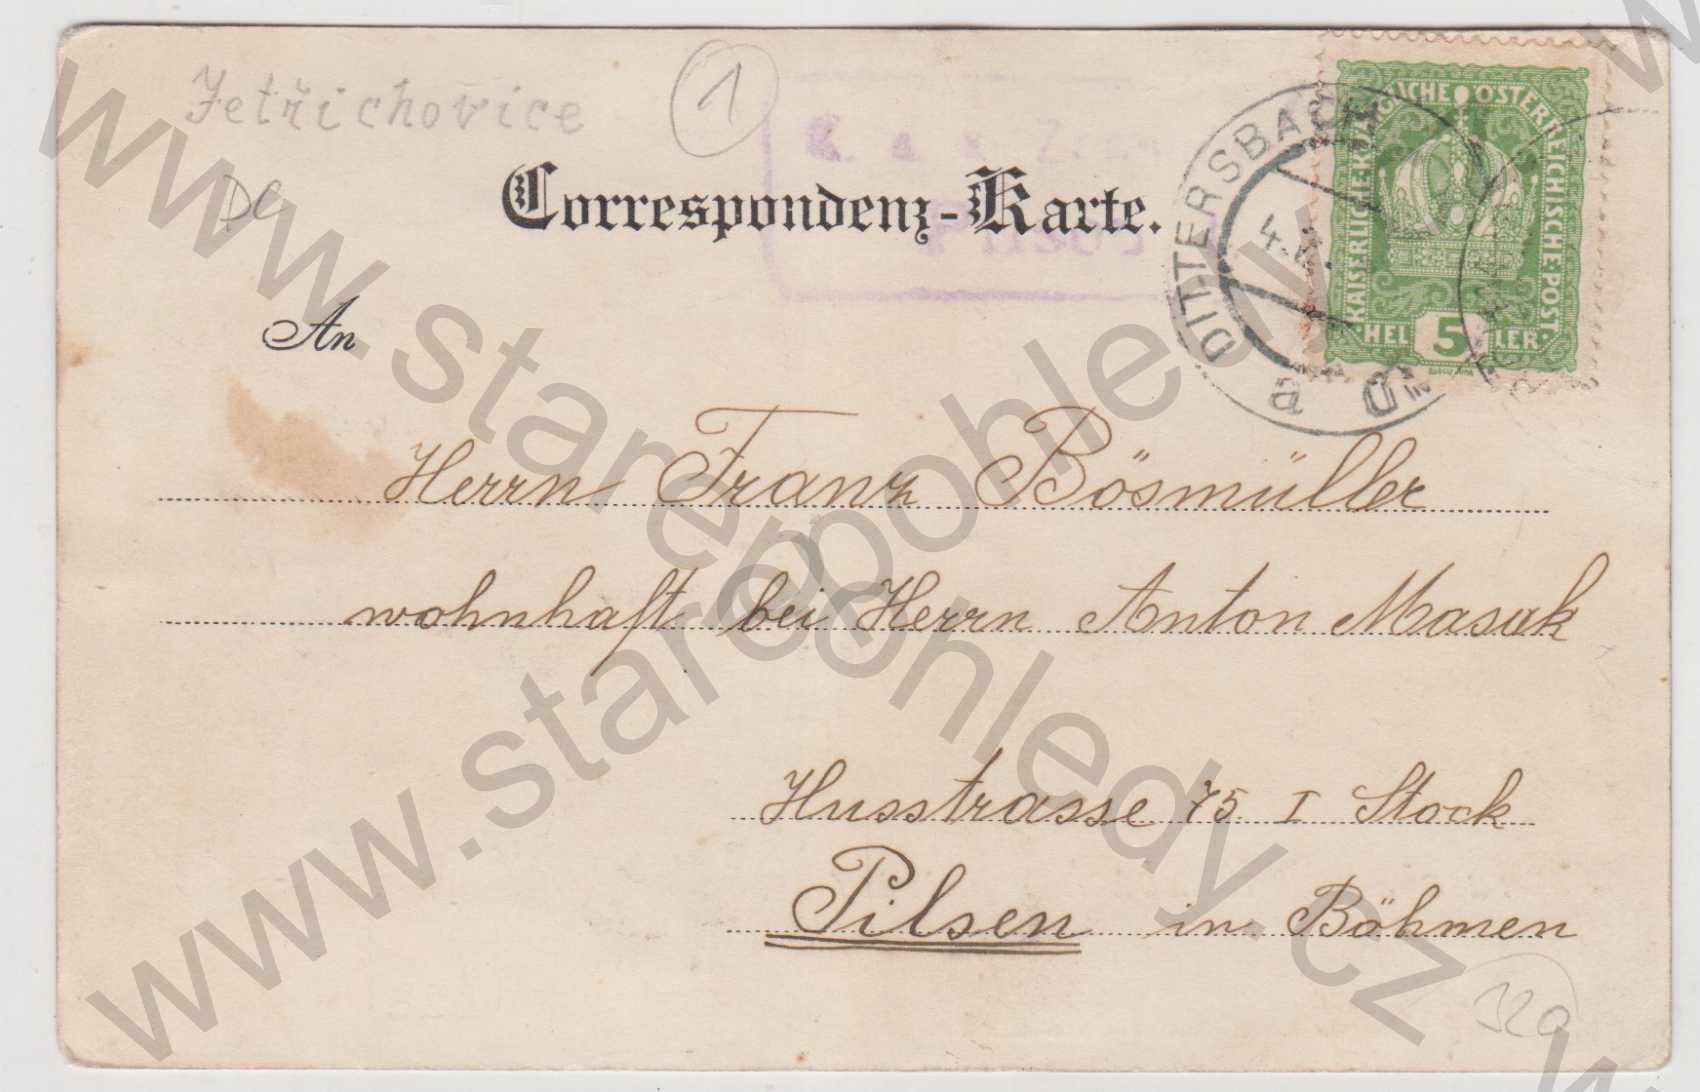 Jetřichovice
1
DC
Correspondenz-Karte.
KAISERLICHE KÖNIGLICHE ÖSTERREICHISCHE POST
HEL 5 LER
DITTERSBACH
4.
a
An
Herrn Franz Bösmüller
wohnhaft bei Herrn Anton Masak
Husstrasse 75. I Stock
Pilsen in Böhmen
320
www.starepohledy.cz
www.starepohledy.cz